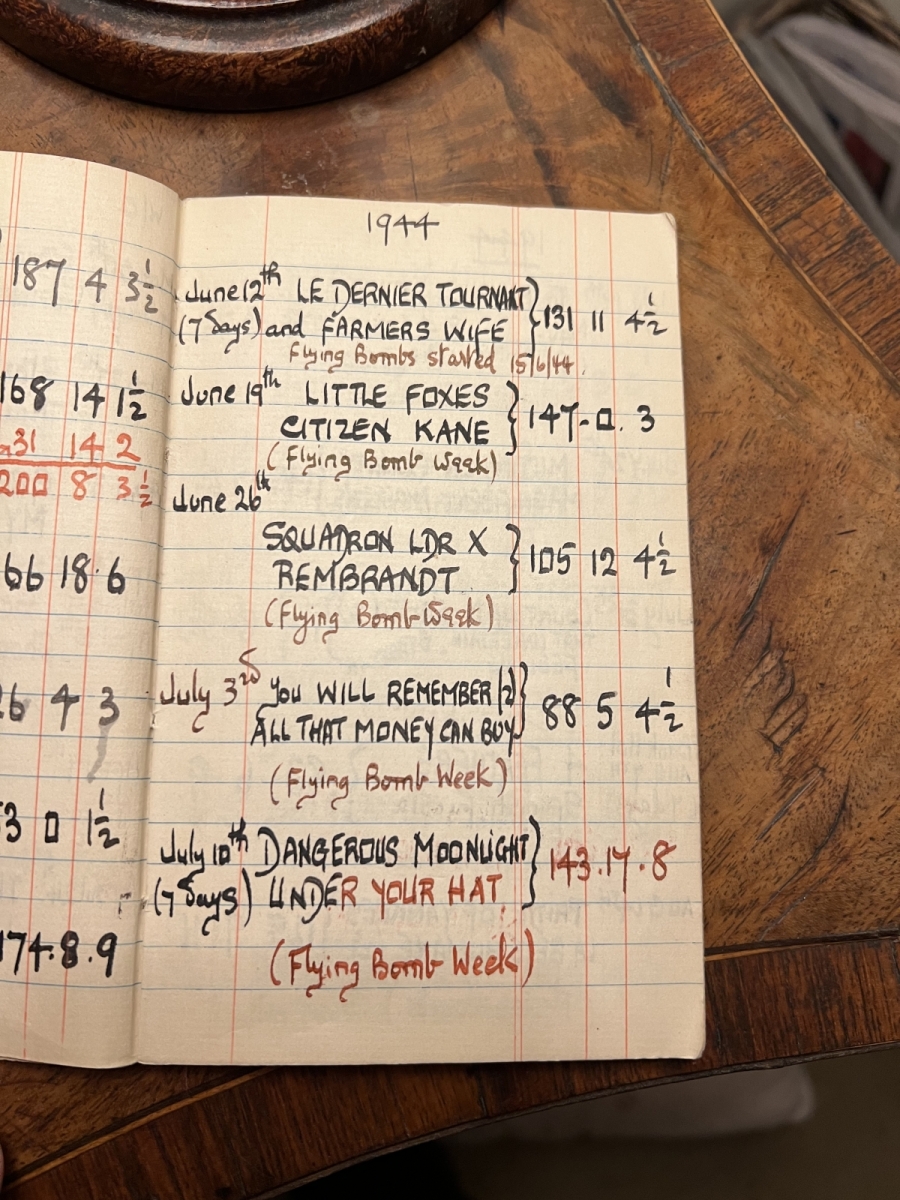 187 4 3½
168 14 1½
31 14 2
200 8 3½
66 18.6
6 4 3
3 0 1½
174.8.9
1944
June 12th LE DERNIER TOURNANT
(7 Days) and FARMERS WIFE } 131 11 4½
Flying Bombs started 15/6/44.
June 19th LITTLE FOXES
CITIZEN KANE } 147-0.3
(Flying Bomb Week)
June 26th
SQUADRON LDR X
REMBRANDT } 105 12 4½
(Flying Bomb Week)
July 3rd YOU WILL REMEMBER (2)
ALL THAT MONEY CAN BUY } 88 5 4½
(Flying Bomb Week)
July 10th DANGEROUS MOONLIGHT
(7 Days) UNDER YOUR HAT } 143.17.8
(Flying Bomb Week)